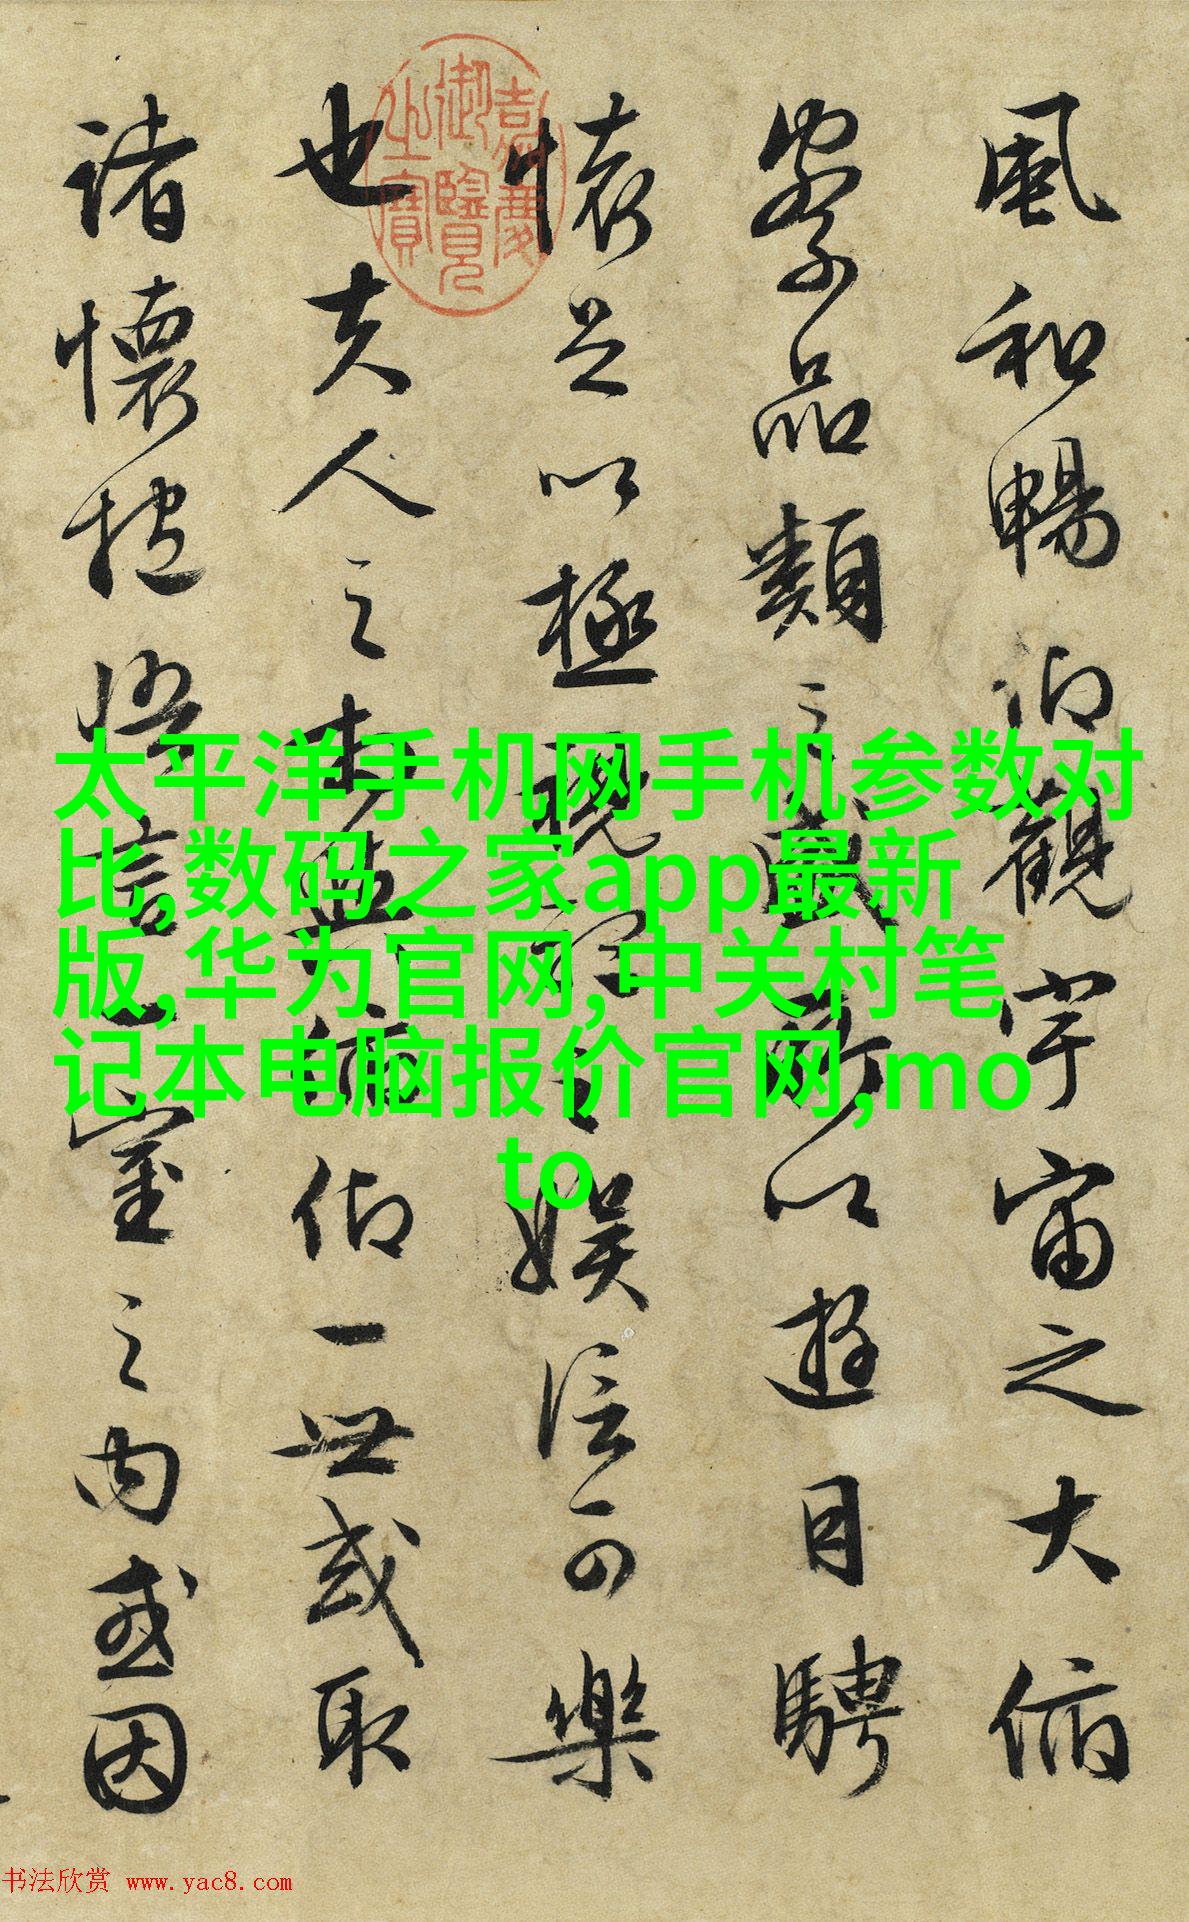 風和暢仰觀宇宙之大俯
察品類之盛所以遊目騁
懷足以極視聽之娛信可樂
也夫人之相與俯仰一世或取
諸懷抱悟言一室之內或因
嘉慶
御覽
之寶
太平洋手机网手机参数对
比,数码之家app最新
版,华为官网,中关村笔
记本电脑报价官网,mo
to
书法欣赏 www.yac8.com